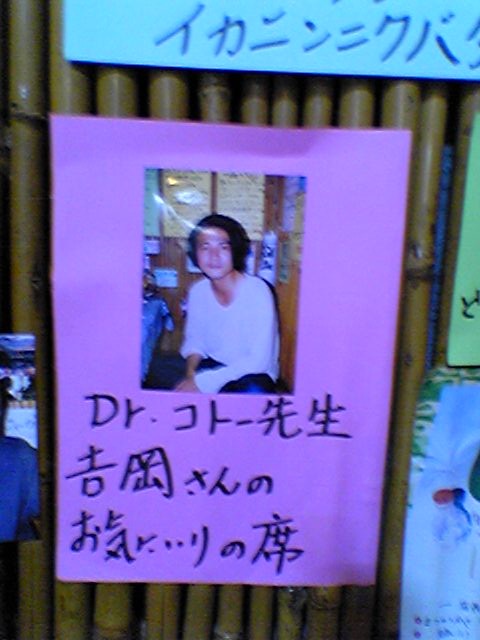 イカニンニクバタ
Dr.コトー先生
吉岡さんの
お気にいりの席
ど